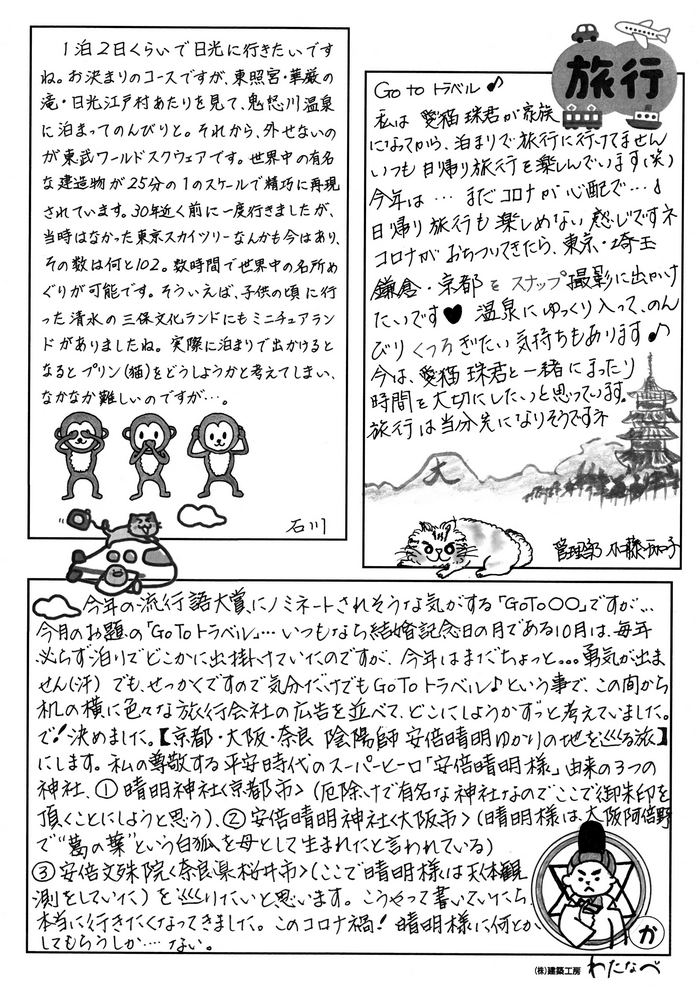 1泊2日くらいで日光に行きたいです
ね。お決まりのコースですが、東照宮・華厳の
滝・日光江戸村あたりを見て、鬼怒川温泉
に泊まってのんびりと。それから、外せないの
が東武ワールドスクウェアです。世界中の有名
な建造物が25分の1のスケールで精巧に再現
されています。30年近く前に一度行きましたが、
当時はなかった東京スカイツリーなんかも今はあり、
その数は何と102。数時間で世界中の名所め
ぐりが可能です。そういえば、子供の頃に行
った清水の三保文化ランドにもミニチュアラン
ドがありましたね。実際に泊まりで出かけると
なるとプリン(猫)をどうしようかと考えてしまい、
なかなか難しいのですが…。
石川
旅行
Go to トラベル♪
私は 愛猫 珠君が家族
になってから、泊まりで旅行に行けてません
いつも日帰り旅行を楽しんでいます(笑)
今年は… まだコロナが心配で…♩
日帰り旅行も楽しめない感じですネ
コロナがおちついてきたら、東京・埼玉
鎌倉・京都をスナップ撮影に出かけ
たいです♥ 温泉にゆっくり入って、のん
びりくつろぎたい気持ちもあります♪
今は、愛猫 珠君と一緒にまったり
時間を大切にしたいと思っています。
旅行は当分先になりそうですネ
大
管理部
今年の流行語大賞にノミネートされそうな気がする「GoTo〇〇」ですが…
今月のお題の「GoToトラベル」…いつもなら結婚記念日の月である10月は、毎年
必らず泊りでどこかに出掛けていたのですが、今年はまだちょっと…。勇気が出ま
せん(汗) でも、せっかくですので気分だけでもGoToトラベル♪という事で、この間から
机の横に色々な旅行会社の広告を並べて、どこにしようかずっと考えていました。
で!決めました。【京都・大阪・奈良 陰陽師 安倍晴明ゆかりの地を巡る旅】
にします。私の尊敬する平安時代のスーパーヒーロー「安倍晴明様」由来の3つの
神社、①晴明神社<京都市>(厄除けで有名な神社なのでここで御朱印を
頂くことにしようと思う)、②安倍晴明神社<大阪市>(晴明様は、大阪阿倍野
で“葛の葉”という白狐を母として生まれたと言われている)
③安倍文殊院<奈良県桜井市>(ここで晴明様は天体観
測をしていた)を巡りたいと思います。こうやって書いていたら、
本当に行きたくなってきました。このコロナ禍!晴明様に何とか
してもらうしか…ない。
か
(株)建築工房 わたなべ